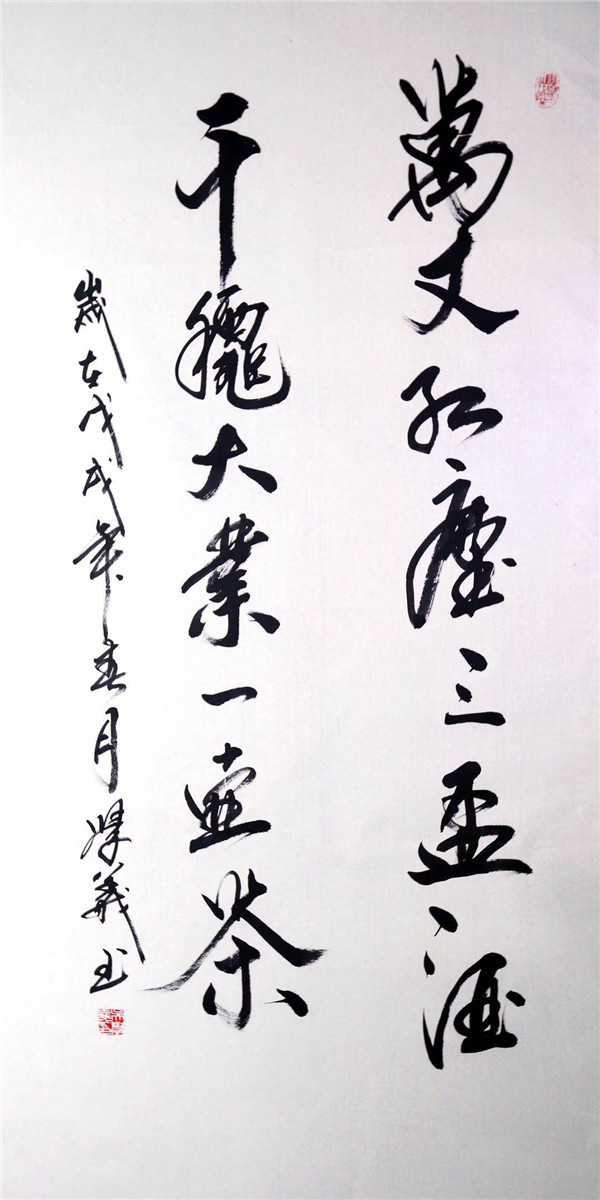 萬丈紅塵三盃酒
千龝大業一壺茶
歲在戊戌年春月義书